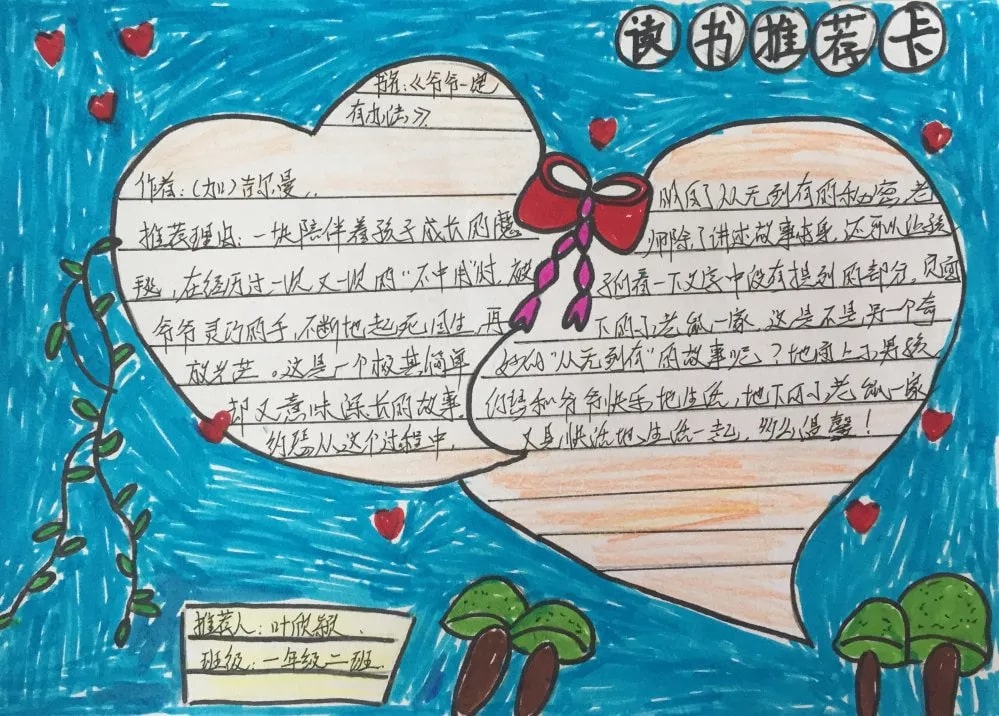 读书推荐卡
书名：《爷爷一定
有办法》
作者：（加）吉尔曼
推荐理由：一块陪伴着孩子成长的魔
毯，在经历过一次又一次的“不中用”时，被
爷爷灵巧的手，不断地起死回生，再
放光芒。这是一个极其简单
却又意味深长的故事
约瑟从这个过程中，
明白了从无到有的秘密，老
师除了讲述故事本身，还可以让孩
子们看一下文字中没有提到的部分。页面
下的小老鼠一家，这是不是另一个奇
妙的“从无到有”的故事呢？地面上小男孩
约瑟和爷爷快乐地生活，地下的小老鼠一家
又是快活地生活一起，多么温馨！
推荐人：叶欣颖
班级：一年级二班